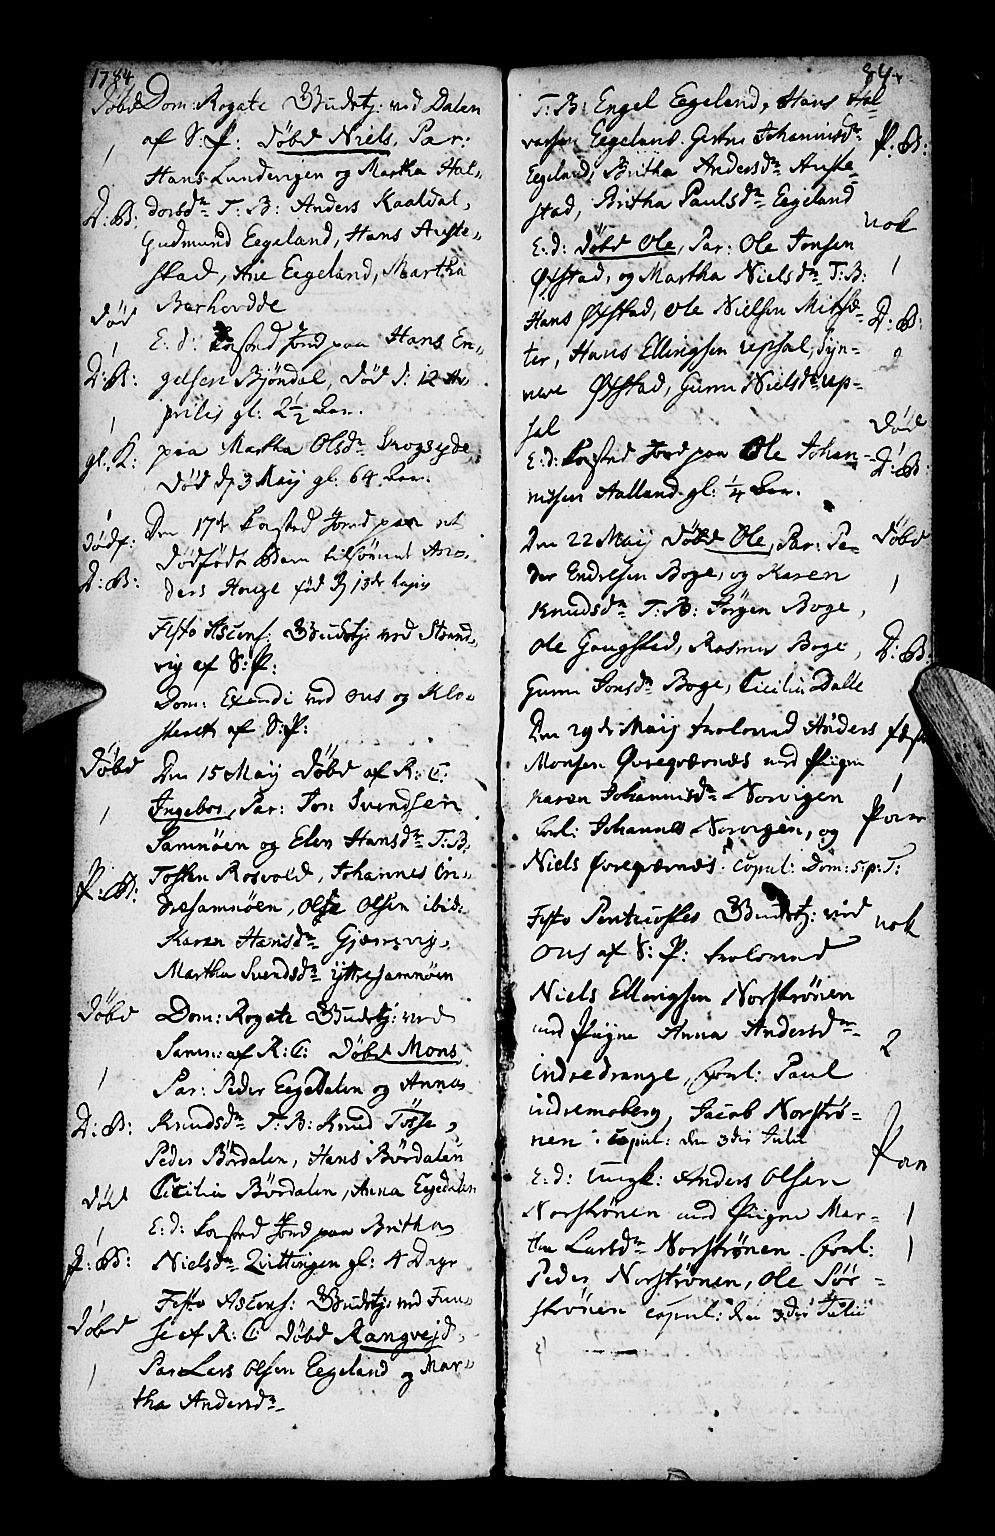 1784
Døbd Dom: Rogate Gudstj: ved Dalen
af S: P: Døbd Niels, Par:
1
Hans Lundevigen og Martha Hal-
D: B: dorsdr T: B: Anders Kaaldal,
Gudmund Eegeland, Hans Auste-
stad, Ane Eegeland, Martha
Død Berhovdde
1 E: d: kasted Jord paa Hans En-
D: B: gelsen Bjöndal, død d: 12 A-
prilis gl: 2½ Aar.
1 paa Martha Olsdr Skogseyde
gl. K: død d 3 Maij gl: 64 Aar.
1 Den 17de kasted Jord paa et
dødf: dødfødt Barn tilhørende An-
D: B: ders Houge fød d 13de
Festo Ascens: Gudstj: ved Strand-
vig af S: P:
Dom: Exaudi ved Ous og Klo-
steret af S: P:
Døbd Den 15 Maij Døbd af R: C:
1 Ingebor, Par: Jon Svendsen
Samnøen og Elen Hansdr T: B:
P: B: Tosten Rosvold, Johannes In-
dresamnøen, Ole Olsen ibid:
Karen Hansdr Gjærsvig,
Martha Svendsdr Yttresamnøen
Døbd Dom: Rogate Gudstj: ved
Samn: af R: C: Døbd Mons
1 Par: Peder Eegedalen og Anna
D: B: Knudsdr T: B: Knud Tøsse,
Peder Bördalen, Hans Bördalen
Død Cicilia Bördalen, Anna Eegedalen
1 E: d: kasted Jord paa Britha
P: B: Nielsdr Qvittingen gl: 4 Dage
Døbd Festo Ascens: Gudstj: ved Fuu-
se af R: C: Døbd Rangvejd,
1 Par Lars Olsen Eegeland og Mar-
tha Andersdr
84
T: B: Engel Eegeland, Hans Hal-
vorsen Eegeland. Gertru Johannisdr P: B:
Eegeland, Britha Andersdr Auste-
stad, Britha Paulsdr Eegeland nok
E: d: Døbd Ole, Par: Ole Jonsen
Øfstad, og Martha Nielsdr T: B: 1
Hans Øfstad, Ole Nielsen D: B:
ter, Hans Ellingsen Uphsal, Syn-
neve Øfstad, Gunni Nielsdr Up-
sal Død
E: d: kasted Jord paa Ole Johan- 1
nissen Halland gl: ¼ Aar. D: B:
Den 22 Maij Døbd Ole, Par: Pe- Døbd
der Endresen Boge, og Karen 1
Knudsdr T: B: Jörgen Boge,
Ole Gougstad, Rasmus Boge, D: B:
Gunni Jonsdr Boge, Cicilia Dalle
Den 29de Maij trolovved Anders
Monsen Øvreqværnes med Piigen
Karen Johannisdr Norvigen 1
Forl: Johannes Norvigen, og
Niels Øvreqværnes. Copul: Dom: 5: p: T:
Festo Pentecostes Gudstj: ved nok
Ous af S: P: trolovved
Niels Ellingsen Norstrønen
med Piigen Anna Andersdr 2
Indredrange, Forl: Paul
Indremoberg, Jacob Norstrø-
nen. Copul: den 3die Julii
E: d: Ungk: Anders Olsen
Norstrønen med Piigen Mar- 1
tha Larsdr Norstrønen. Forl: 1
Peder Norstrønen, Ole Sør-
strønen copul: den 3die Julii